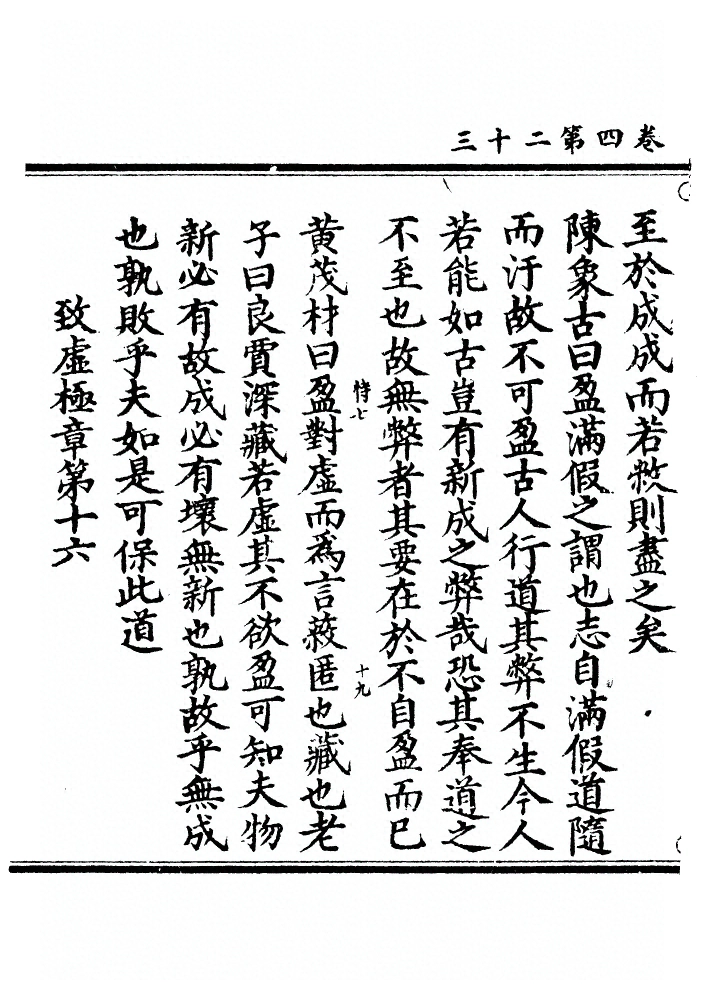 卷四第二十三
至於成成而若敝則盡之矣
陳象古曰盈滿假之謂也志自滿假道隨
而汙故不可盈古人行道其弊不生今人
若能如古豈有新成之弊哉恐其奉道之
不至也故無弊者其要在於不自盈而已
特七
十九
黃茂材曰盈對虛而為言蔽匿也藏也老
子曰良賈深藏若虛其不欲盈可知夫物
新必有故成必有壞無新也孰故乎無成
也孰敗乎夫如是可保此道
致虛極章第十六